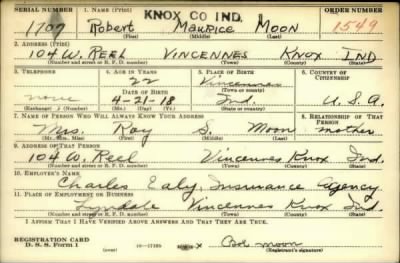 SERIAL NUMBER 1. NAME (Print) KNOX CO IND. ORDER NUMBER
1707 Robert Maurice Moon 1549
(First) (Middle) (Last)
2. ADDRESS (Print)
104 W. REEL VINCENNES KNOX IND
(Number and street or R. F. D. number) (Town) (County) (State)
3. TELEPHONE 4. AGE IN YEARS 5. PLACE OF BIRTH 6. COUNTRY OF CITIZENSHIP
22 Vincennes
none DATE OF BIRTH (Town or county)
4-21-18 Ind. U.S.A.
(Exchange) (Number) (Mo.) (Day) (Yr.) (State or country)
7. NAME OF PERSON WHO WILL ALWAYS KNOW YOUR ADDRESS 8. RELATIONSHIP OF THAT PERSON
Mrs. Roy S. Moon mother
(Mr., Mrs., Miss) (First) (Middle) (Last)
9. ADDRESS OF THAT PERSON
104 W. Reel Vincennes Knox Ind.
(Number and street or R. F. D. number) (Town) (County) (State)
10. EMPLOYER'S NAME
Charles Ealy, Insurance Agency
11. PLACE OF EMPLOYMENT OR BUSINESS
Lyndale Vincennes Knox Ind.
(Number and street or R. F. D. number) (Town) (County) (State)
I AFFIRM THAT I HAVE VERIFIED ABOVE ANSWERS AND THAT THEY ARE TRUE.
REGISTRATION CARD
D. S. S. Form 1 16—17105 x Bob Moon
(over) (Registrant's signature)